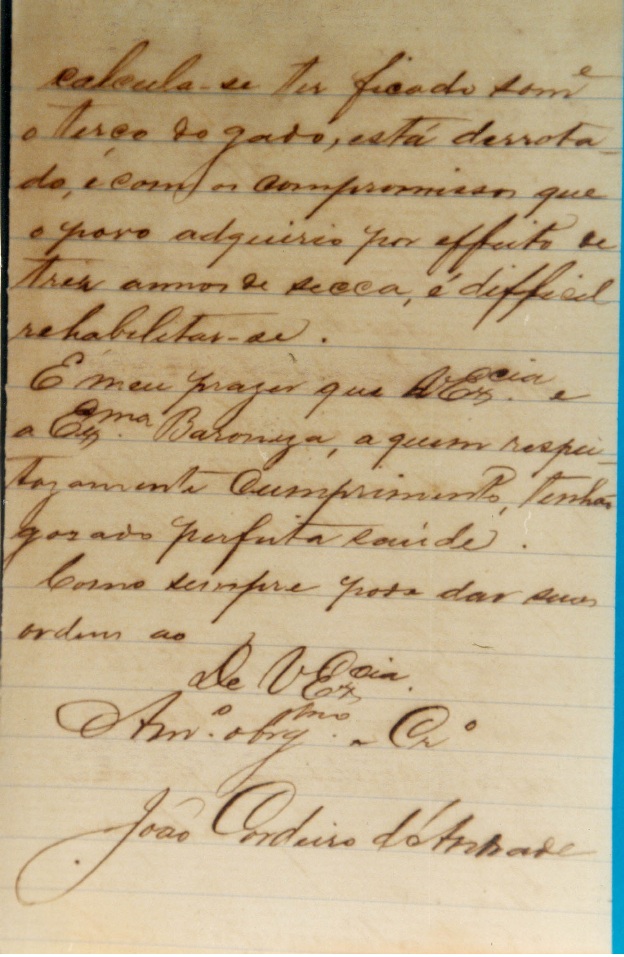 calcula-se ter ficado som^e
o terço do gado, está derrota-
do, e com os compromissos que
o povo adquirio por effeito de
tres annos de secca, é difficil
rehabilitar-se.
É meu prazer que VEx^cia. e
a Ex^ma. Baroneza, a quem respei-
tozamente cumprimento, tenhão
gozado perfeita saúde.
Como sempre pode dar suas
ordens ao
De VEx^cia.
Am^o. obrg^mo. e Cr^o
João Cordeiro d'Andrade